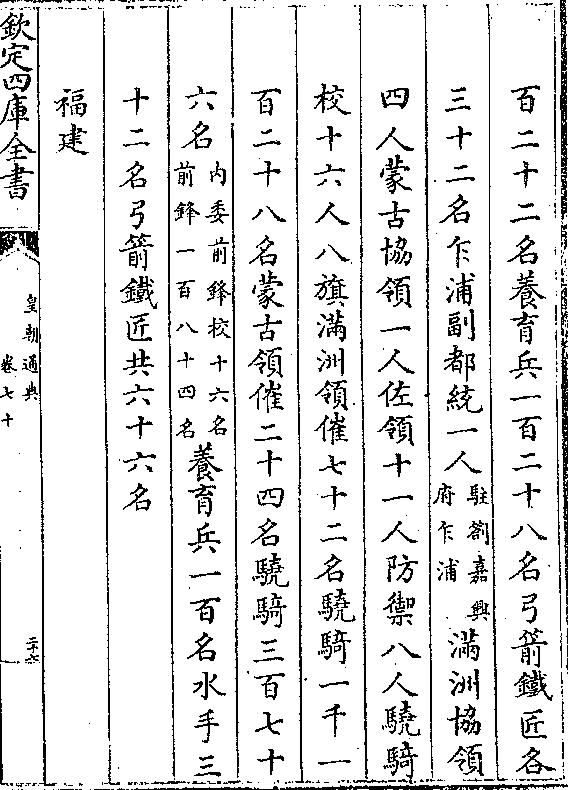 百二十二名養育兵一百二十八名弓箭鐵匠各
三十二名乍浦副都統一人駐劄嘉興府乍浦滿洲協領
四人蒙古協領一人佐領十一人防禦八人驍騎
校十六人八旗滿洲領催七十二名驍騎一千一
百二十八名蒙古領催二十四名驍騎三百七十
六名内委前鋒校十六名前鋒一百八十四名養育兵一百名水手三
十二名弓箭鐵匠共六十六名
福建
欽定四庫全書
皇朝通典
卷七十
二十六